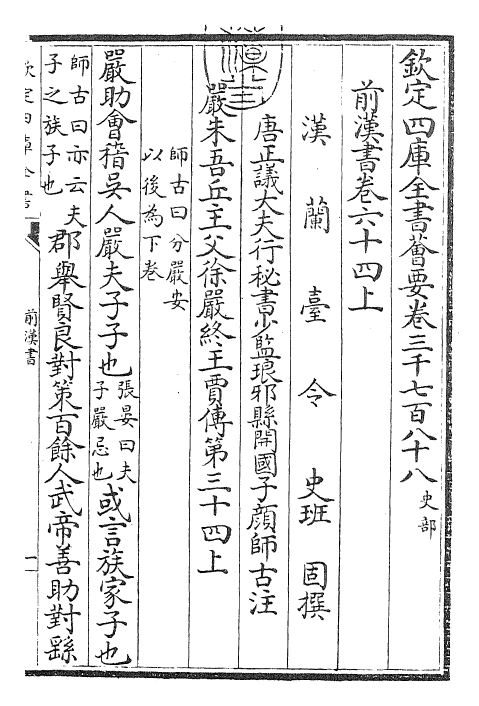 欽定四庫全書薈要卷三千七百八十八 史部
前漢書卷六十四上
漢蘭臺令史班固撰
唐正議大夫行秘書少監琅邪縣開國子顏師古注
嚴朱吾丘主父徐嚴終王賈傳第三十四上
師古曰分嚴安
以後為下卷
嚴助會稽吳人嚴夫子子也張晏曰夫
子嚴忌也或言族家子也
師古曰亦云夫
子之族子也郡舉賢良對策百餘人武帝善助對繇
欽定四庫全書
前漢書
一